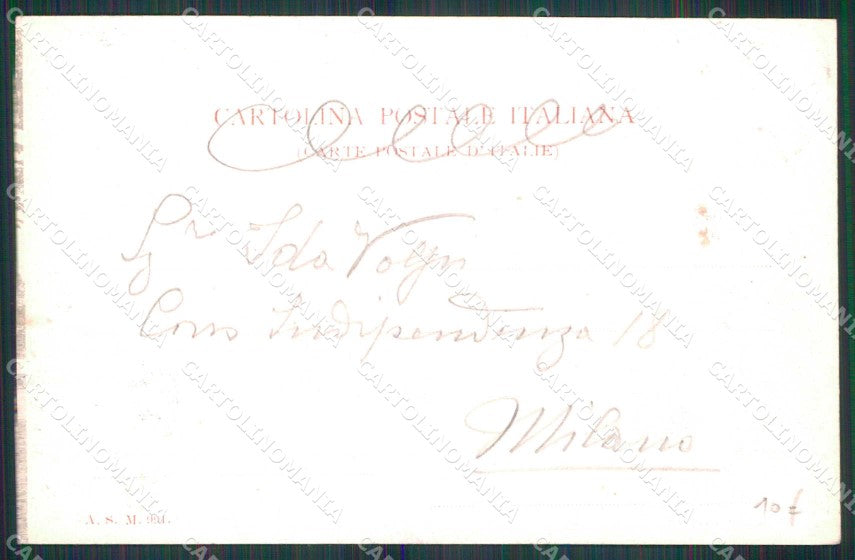 CARTOLINA POSTALE ITALIANA
(CARTE POSTALE D'ITALIE)
Ida
Corso Indipendenza 18
Milano
A. S. M.
10 £
CARTOLINOMANIA